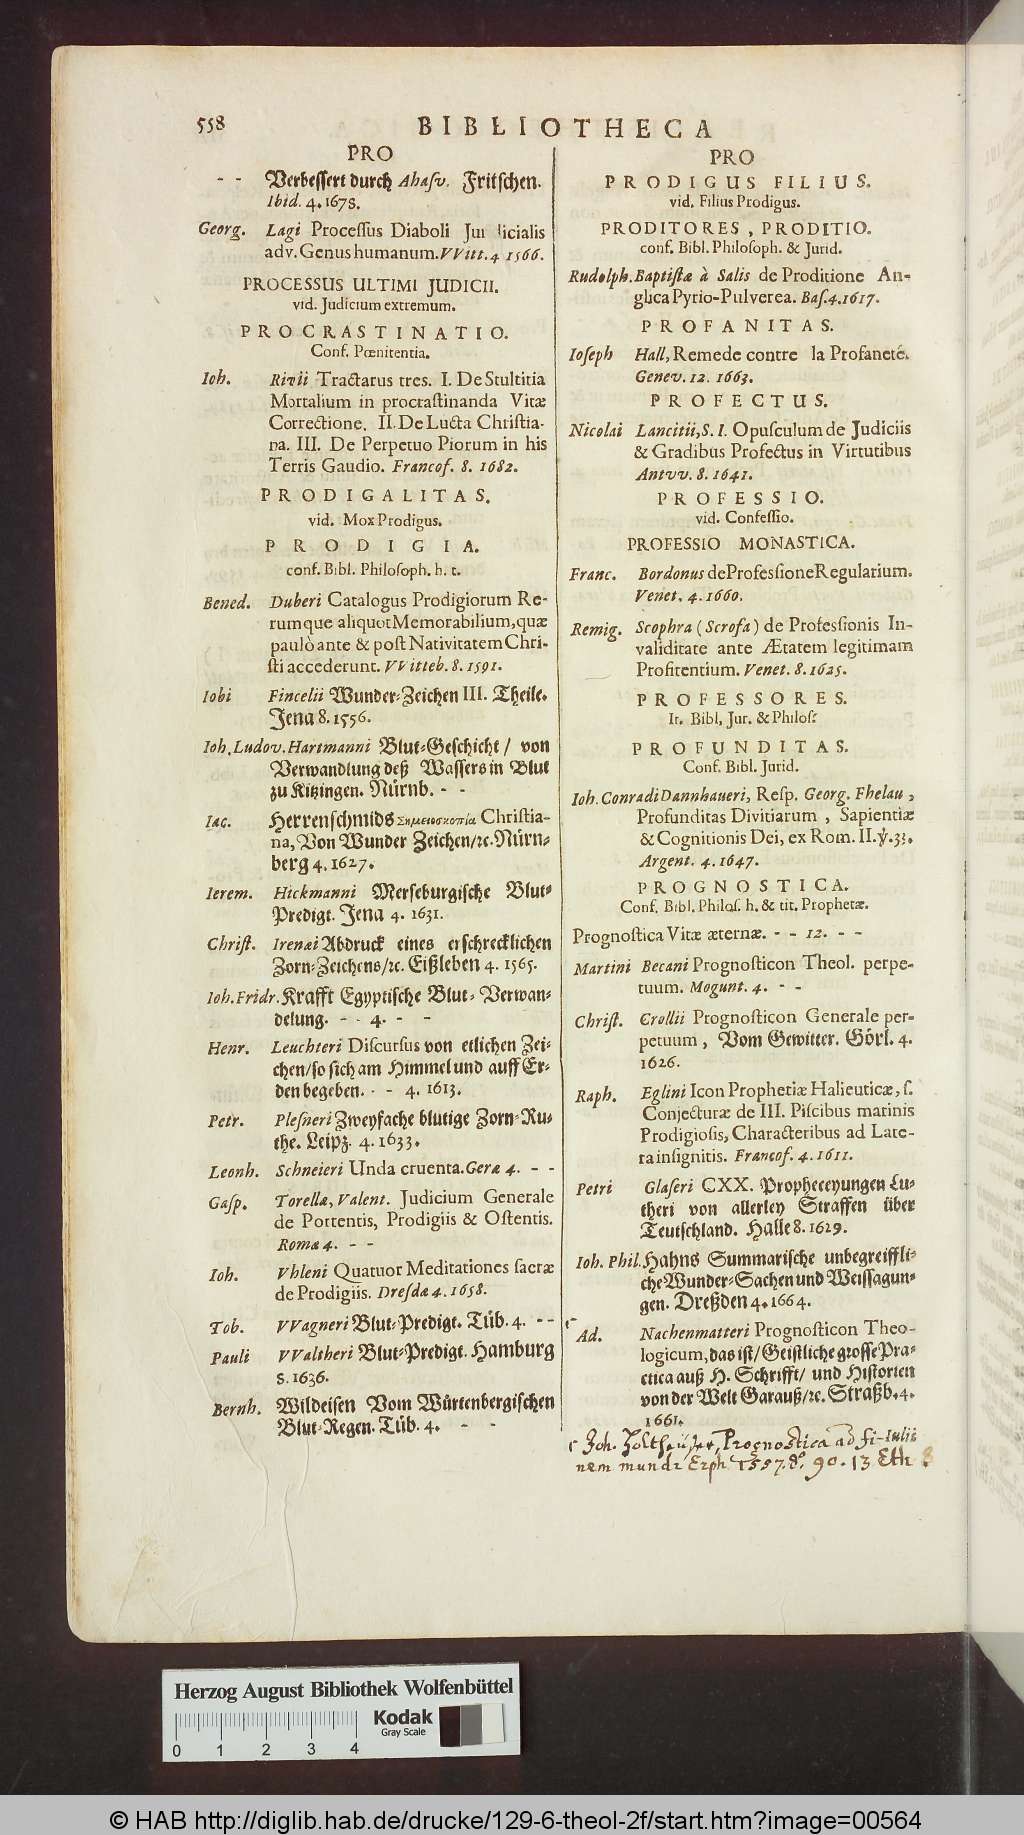 558
BIBLIOTHECA
PRO
- - Verbessert durch Ahasv. Fritschen.
Ibid. 4. 1678.
Georg. Lagi Processus Diaboli Ju licialis
adv. Genus humanum. VVitt. 4 1566.
PROCESSUS ULTIMI JUDICII.
vid. Judicium extremum.
PROCRASTINATIO.
Conf. Pœnitentia.
Ioh. Rivii Tractatus tres. I. De Stultitia
Mortalium in procrastinanda Vitæ
Correctione. II. De Lucta Christia-
na. III. De Perpetuo Piorum in his
Terris Gaudio. Francof. 8. 1682.
PRODIGALITAS.
vid. Mox Prodigus.
PRODIGIA.
conf. Bibl. Philosoph. h. t.
Bened. Duberi Catalogus Prodigiorum Re-
rumque aliquot Memorabilium, quæ
paulò ante & post Nativitatem Chri-
sti accederunt. VVitteb. 8. 1591.
Iobi Fincelii Wunder-Zeichen III. Theile.
Jena 8. 1556.
Ioh. Ludov. Hartmanni Blut-Geschicht / von
Verwandlung deß Wassers in Blut
zu Kitzingen. Nürnb. - -
Iac. Herrenschmids Σημειοσκοπία Christia-
na, Von Wunder Zeichen/ꝛc. Nürn-
berg 4. 1627.
Ierem. Hickmanni Merseburgische Blut-
Predigt. Jena 4. 1631.
Christ. Irenæi Abdruck eines erschrecklichen
Zorn-Zeichens/ꝛc. Eißleben 4. 1565.
Ioh. Fridr. Krafft Egyptische Blut-Verwan-
delung. - - 4. - -
Henr. Leuchteri Discursus von etlichen Zei-
chen/so sich am Himmel und auff Er-
den begeben. - - 4. 1613.
Petr. Plesneri Zweyfache blutige Zorn-Ru-
the. Leipz. 4. 1633.
Leonh. Schneieri Unda cruenta. Geræ 4. - -
Gasp. Torellæ, Valent. Judicium Generale
de Portentis, Prodigiis & Ostentis.
Romæ 4. - -
Ioh. Vhleni Quatuor Meditationes sacræ
de Prodigiis. Dresdæ 4. 1658.
Tob. VVagneri Blut-Predigt. Tüb. 4. - -
Pauli VValtheri Blut-Predigt. Hamburg
8. 1636.
Bernh. Wildeisen Vom Würtenbergischen
Blut-Regen. Tüb. 4. - -
PRO
PRODIGUS FILIUS.
vid. Filius Prodigus.
PRODITORES, PRODITIO.
conf. Bibl. Philosoph. & Jurid.
Rudolph. Baptistæ à Salis de Proditione An-
glica Pyrio-Pulverea. Bas. 4. 1617.
PROFANITAS.
Ioseph Hall, Remede contre la Profaneté.
Genev. 12. 1663.
PROFECTUS.
Nicolai Lancitii, S. I. Opusculum de Judiciis
& Gradibus Profectus in Virtutibus
Antvv. 8. 1641.
PROFESSIO.
vid. Confessio.
PROFESSIO MONASTICA.
Franc. Bordonus de Professione Regularium.
Venet. 4. 1660.
Remig. Scophra (Scrofa) de Professionis In-
validitate ante Ætatem legitimam
Profitentium. Venet. 8. 1625.
PROFESSORES.
It. Bibl. Jur. & Philos.
PROFUNDITAS.
Conf. Bibl. Jurid.
Ioh. Conradi Dannhaueri, Resp. Georg. Fhelau,
Profunditas Divitiarum, Sapientiæ
& Cognitionis Dei, ex Rom. II. ỳ. 33.
Argent. 4. 1647.
PROGNOSTICA.
Conf. Bibl. Philos. h. & tit. Prophetæ.
Prognostica Vitæ æternæ. - - 12. - -
Martini Becani Prognosticon Theol. perpe-
tuum. Mogunt. 4. - -
Christ. Crollii Prognosticon Generale per-
petuum, Vom Gewitter. Görl. 4.
1626.
Raph. Eglini Icon Prophetiæ Halieuticæ, s.
Conjecturæ de III. Piscibus marinis
Prodigiosis, Characteribus ad Late-
ra insignitis. Francof. 4. 1611.
Petri Glaseri CXX. Propheceyungen Lu-
theri von allerley Straffen über
Teutschland. Halle 8. 1629.
Ioh. Phil. Hahns Summarische unbegreiffli-
che Wunder-Sachen und Weissagun-
gen. Dreßden 4. 1664.
Ad. Nachenmatteri Prognosticon Theo-
logicum, das ist/Geistliche grosse Pra-
ctica auß H. Schrifft/ und Historien
von der Welt Garauß/ꝛc. Straßb. 4.
1661.
Joh. Prognostica ad fi-
nem mundi Erph 1557. 8° 90. 13 Eth 8
Herzog August Bibliothek Wolfenbüttel
Kodak
Gray Scale
0 1 2 3 4
© HAB http://diglib.hab.de/drucke/129-6-theol-2f/start.htm?image=00564